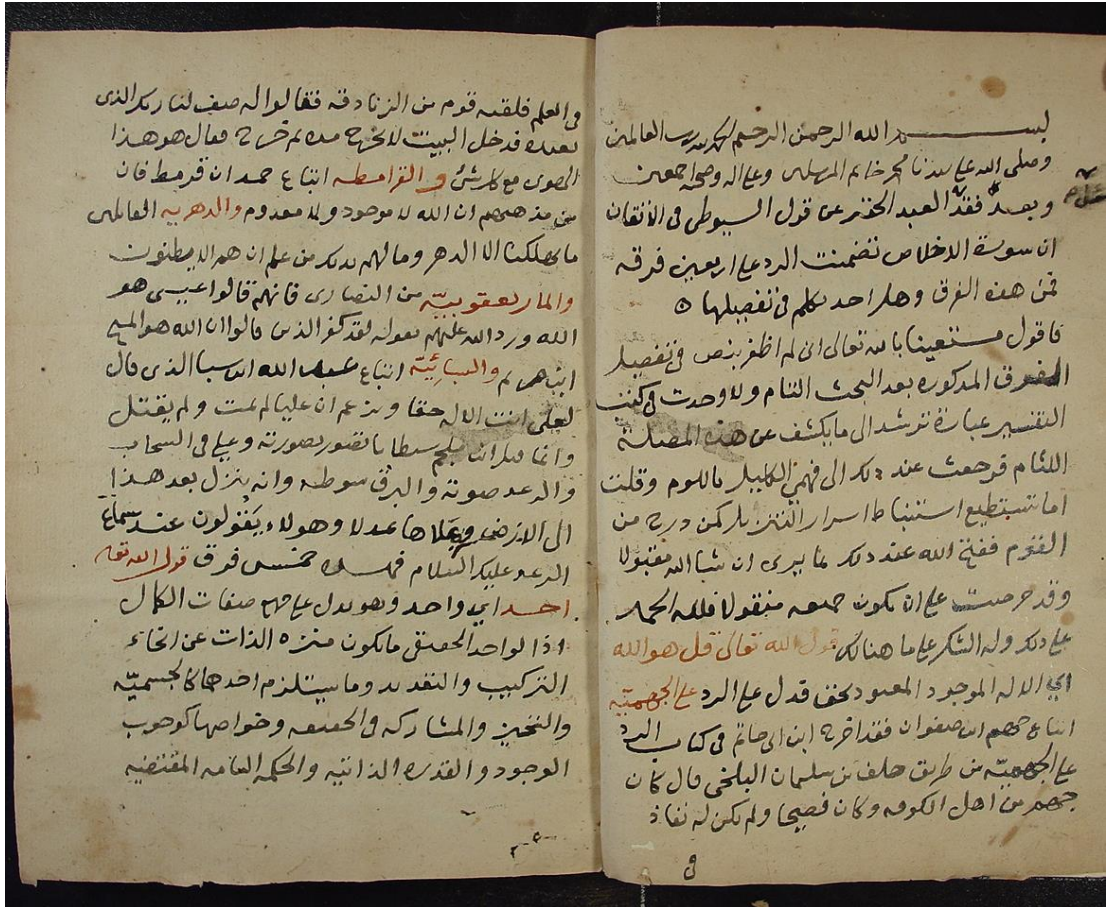 بسم الله الرحمن الرحيم الحمد لله رب العالمين
وصلى الله على سيدنا محمد خاتم المرسلين وعلى اله وصحبه اجمعين
وبعد فقد العبد الحقير عن قول السيوطى فى الاتقان
ان سورة الاخلاص تضمنت الرد على اربعين فرقه
فمن هذه الفرق وهل احد تكلم فى تفصيلها
فاقول مستعينا بالله تعالى انى لم اظفر بنص فى تفصيل
الفرق المذكوره بعد البحث التام ولا وجدت فى كتب
التفسير عبارة ترشد الى ما يكشف عن هذه المعضلة
اللثام فرجعت عند ذلك الى فهمي الكليل باللوم وقلت
اما تستطيع استنباط اسرار التنزيل كمن درج من
القوم ففتح الله عند ذلك بما يرى ان شا الله مقبولا
وقد حرصت على ان يكون جميعه منقولا فلله الحمد
على ذلك وله الشكر على ما هنالك قول الله تعالى قل هو الله
اي الاله الموجود المعبود بحق فدل على الرد على الجهميّة
اتباع جهم ابن صفوان فقد اخرج ابن ابى حاتم فى كتاب الرد
على الجهميّة من طريق خلف بن سليمان البلخى قال كان
جهم من اهل الكوفه وكان فصيحا ولم يكن له نفاذ
فى
فى العلم فلقيه قوم من الزنادقه فقالوا له صف لنا ربك الذى
تعبده فدخل البيت لا يخرج مده ثم خرج فقال هو هذا
الهوى مع كل شئ والقرامطه اتباع حمدان قرمط فان
من مذهبهم ان الله لا موجود ولا معدوم والدهريه القائلين
ما يهلكنا الا الدهر وما لهم بذلك من علم ان هم الا يظنون
والمار يعقوبيّه من النصارى فانهم قالوا عيسى هو
الله ورد الله عليهم بقوله لقد كفر الذين قالوا ان الله هو المسيح
ابن مريم والسبائيّة اتباع عبد الله ابن سبا الذى قال
لعلى انت الاله حقا وزعم ان عليا لم يمت ولم يقتل
وانما قتل ابن ملجم شيطانا تصور بصورته وعلى فى السحاب
والرعد صوته والبرق سوطه وانه ينزل بعد هذا
الى الارض ويملاها عدلا وهولاء يقولون عند سماع
الرعد عليك السلام فهذه خمس فرق قول الله تعالى
احد اي واحد وهو يدل على جميع صفات الكمال
اذ الواحد الحقيقى ما يكون منزه الذات عن انحاء
التركيب والتعدد وما يستلزم احدهما كالجسميّه
والتحيز والمشاركه فى الحقيقه وخواصها كوجوب
الوجود والقدره الذاتيه والحكمه التامه المقتضيه